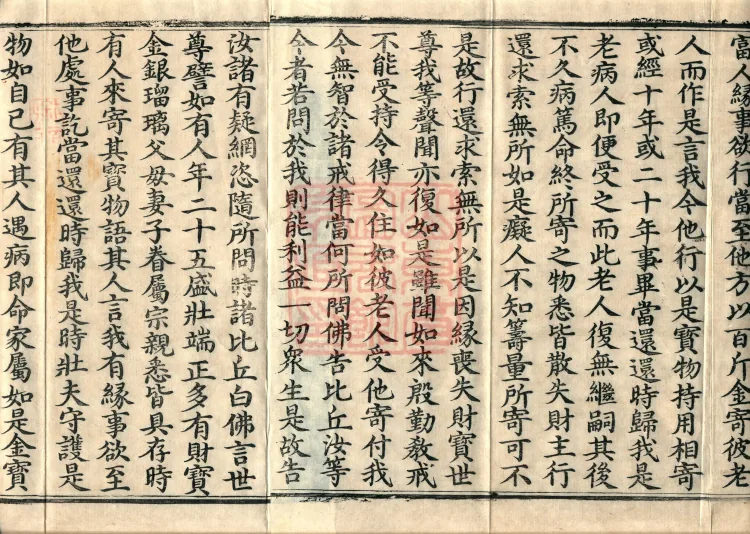 富人緣事欲行當至他方以百斤金寄彼老
人而作是言我今他行以是寶物持用相寄
或經十年或二十年事畢當還還時歸我是
老病人即便受之而此老人復無繼嗣其後
不久病篤命終所寄之物悉皆散失財主行
還求索無所如是癡人不知籌量所寄可不
是故行還求索無所以是因緣喪失財寶世
尊我等聲聞亦復如是雖聞如來殷勤教戒
不能受持令得久住如彼老人受他寄付我
今無智於諸戒律當何所問佛告比丘汝等
今者若問於我則能利益一切眾生是故告
汝諸有疑網恣隨所問時諸比丘白佛言世
尊譬如有人年二十五盛壯端正多有財寶
金銀瑠璃父母妻子眷屬宗親悉皆具存時
有人來寄其寶物語其人言我有緣事欲至
他處事訖當還還時歸我是時壯夫守護是
物如自己有其人遇病即命家屬如是金寶